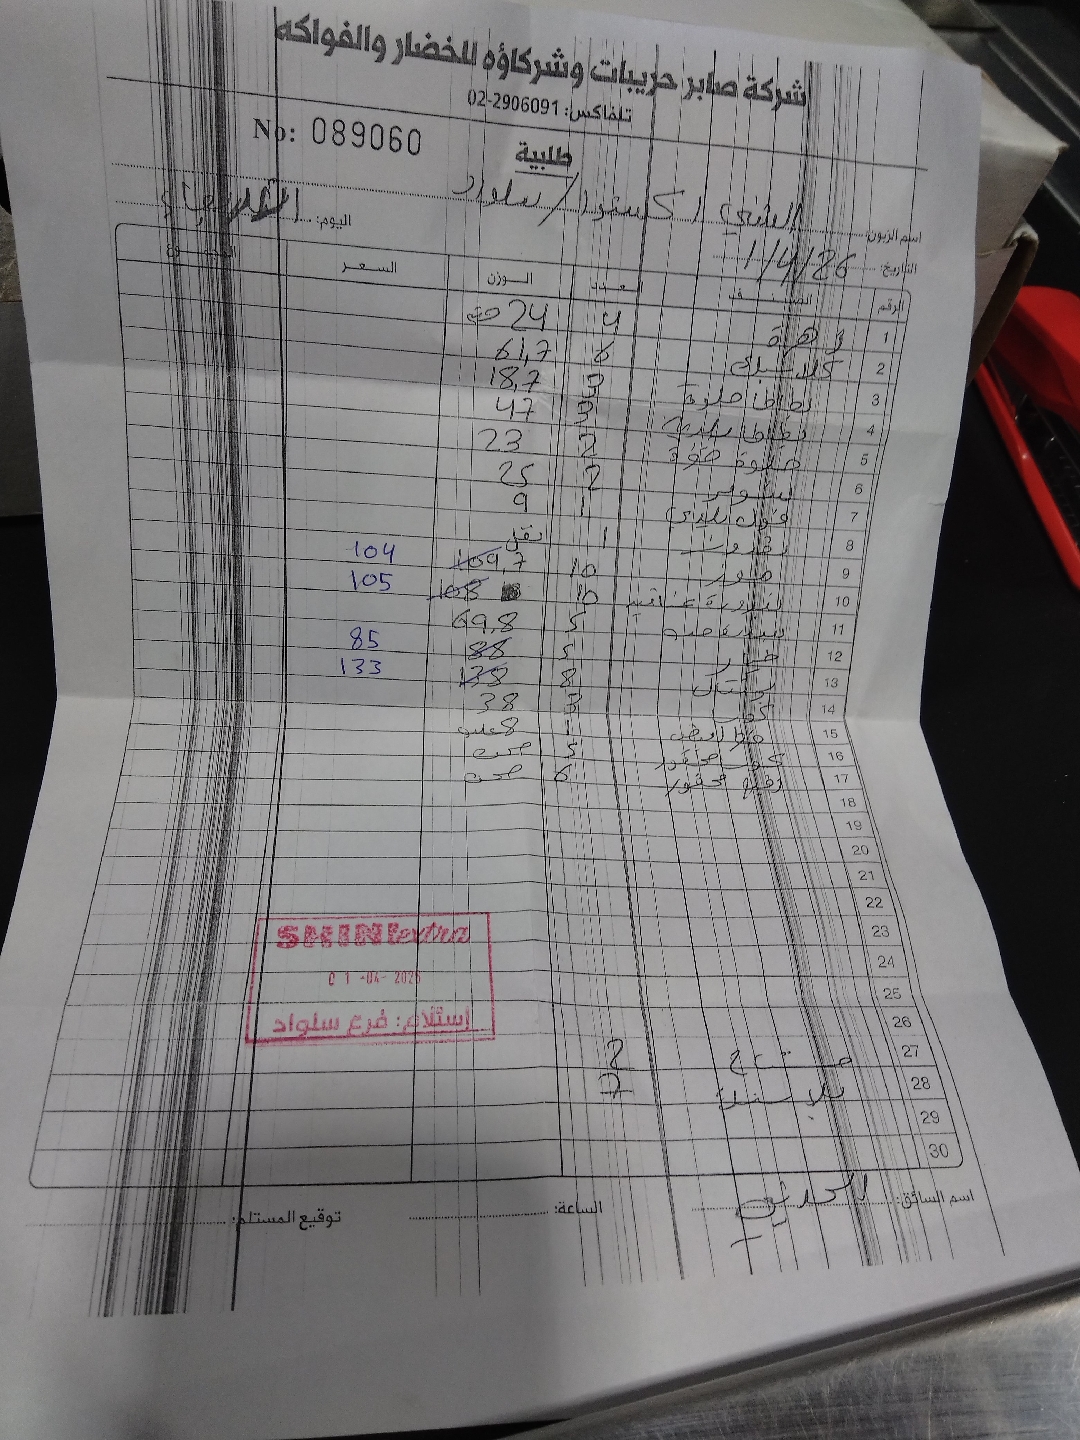 شركة صابر حريبات وشركاؤه للخضار والفواكه
تلفاكس: 02-2906091
No: 089060
طلبية
اسم الزبون: الشني اكسترا / سلواد
اليوم: الأربعاء
التاريخ: 1/4/26
الرقم الصنف العدد الوزن السعر
1 زهرة 4 24
2 6 61,7
3 بطاطا حلوة 3 18,7
4 بطاطا 3 47
5 2 23
6 2 25
7 فول بلدي 1 9
8 1
9 موز 10 109,7 104
10 بندورة 10 108 105
11 5 69,8
12 خيار 5 88 85
13 برتقال 8 138 133
14 3 38
15 1 8
16 كوسا محفور 5 صحن
17 محفور 6 صحن
18
19
20
21
22
23
24
25
26
27 2
28 بلاستيك 7
29
30
SHINI extra
01-04-2026
إستلام: فرع سلواد
اسم السائق:
الساعة:
توقيع المستلم: